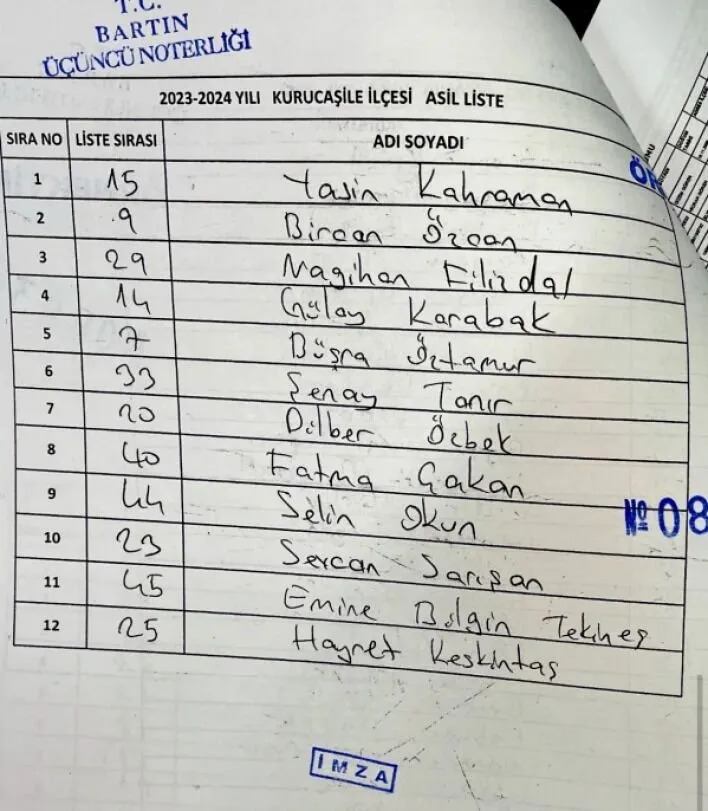 T.C.
BARTIN
ÜÇÜNCÜ NOTERLİĞİ
2023-2024 YILI KURUCAŞİLE İLÇESİ ASİL LİSTE
SIRA NO LİSTE SIRASI ADI SOYADI
1 15 Yasin Kahraman
2 9 Bircan Özcan
3 29 Nagihan Filizdal
4 14 Gülay Karabak
5 7 Büşra Öztamur
6 33 Şenay Tanır
7 20 Dilber Özbek
8 40 Fatma Çakan
9 44 Selin Okun
10 23 Sercan Sarışan
11 45 Emine Bilgin Tekineş
12 25 Hayret Keskintaş
Nº 08
İMZA